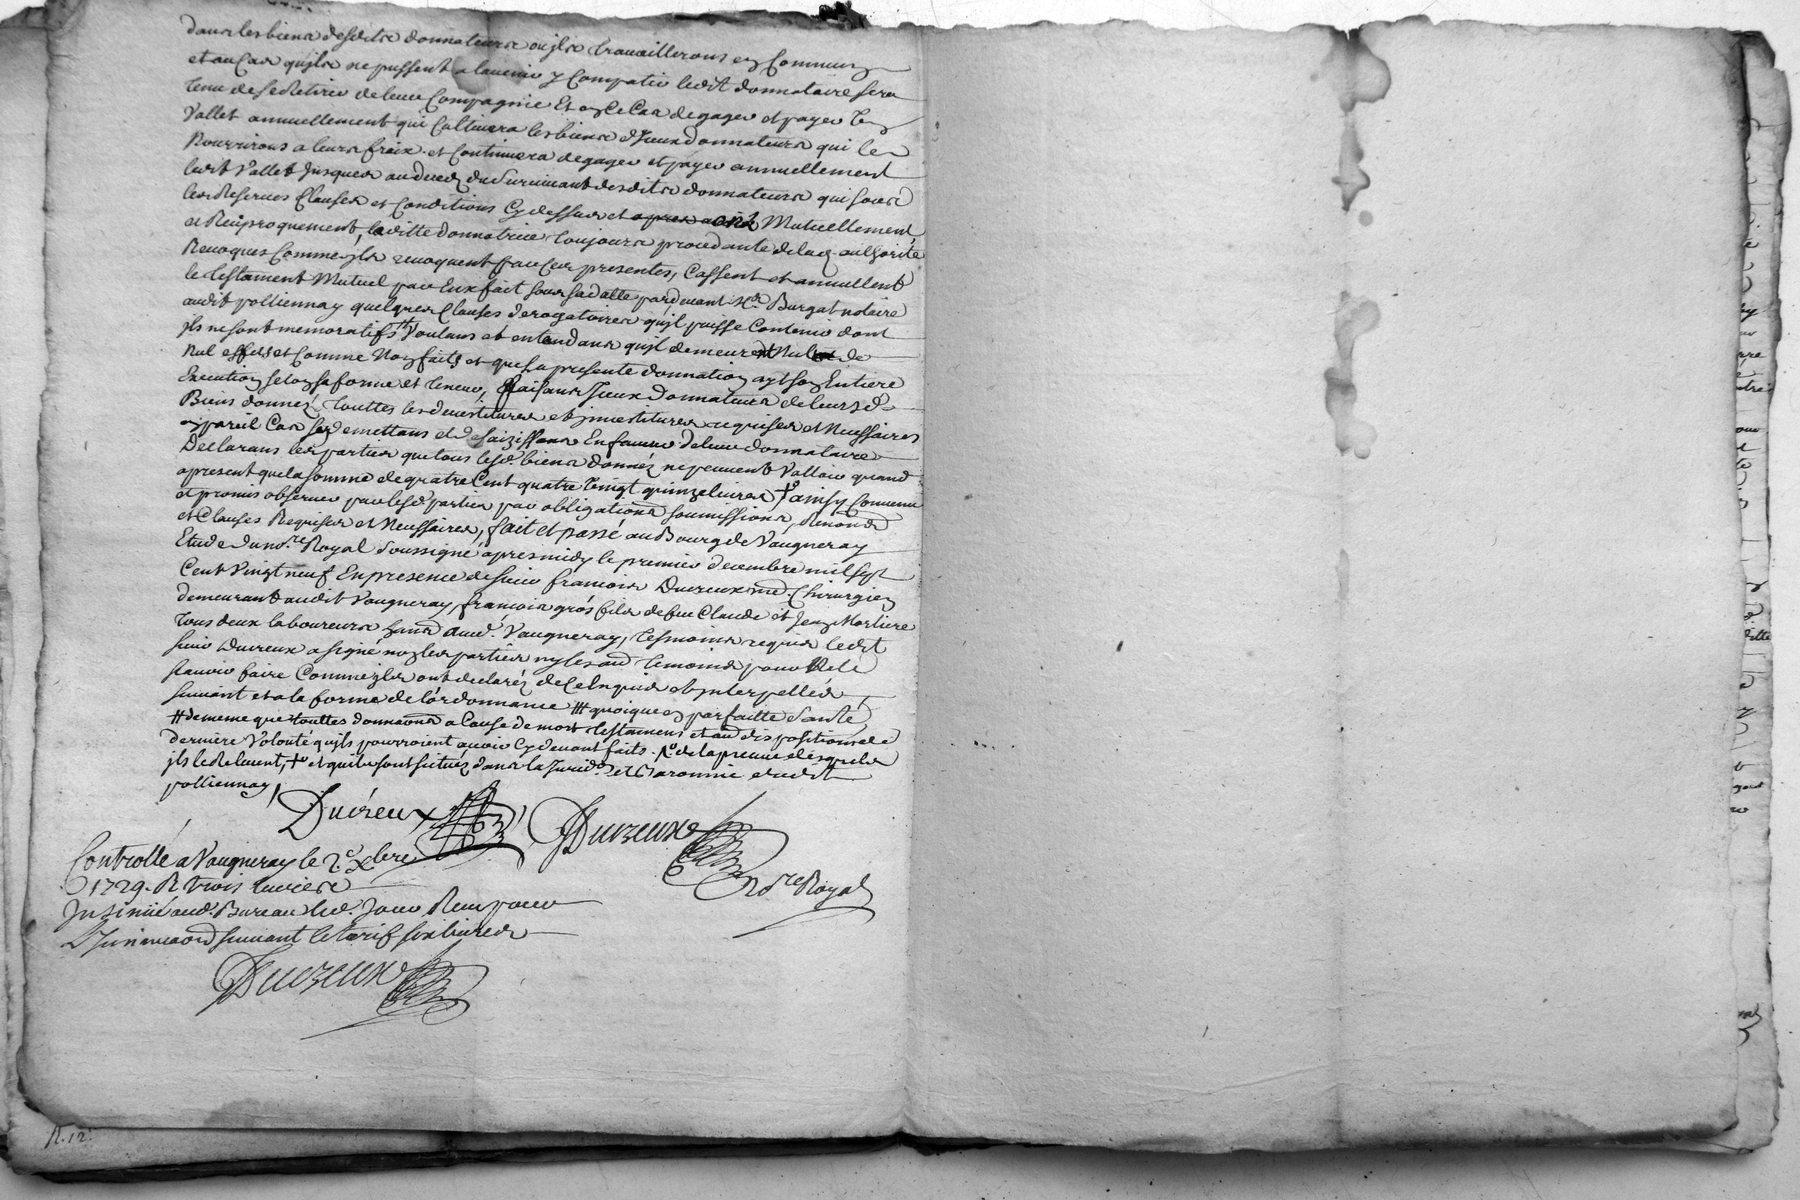 dans les biens desdits donnateurs ou jls travaillerons en Commun
et au Cas qujls ne pussent a lavenir y Compatir ledit donnataire sera
tenu de se Retirer de leur Compagnie Et en Ce Cas de gager et payer un
Vallet annuellement qui Cultivera les biens d'Jceux donnateurs qui le
Nourrirons a leurs fraix et Continuera de gager et payer annuellement
ledit Vallet Jusques au deced du Survivant desdits donnateurs qui sous
les Reserves Clauses et Conditions Cy dessus et apres avoir Mutuellement
et Reciproquement, laditte donnatrice toujours procedante de lad. authorité
Revoques Comme jls revoquent par Ces presentes, Cassent et annullent
le testament Mutuel par Eux fait sous sa datte pardevant Me Burgat notaire
audit polliennay quelques Clauses derogatoires qujl puisse Contenir dont
jls ne sont memoratifs # Voulans et entendans qujl demeure Nul de
Nul effest et Comme Non fait et que la presente donnation ayt son Entiere
Execution selon sa forme et teneur, ffaisans Jceux donnateurs de leurs d.
Biens donnéz touttes les devestitures et jnvestitures requises et Neussaires
en pareil Cas se demettans et desaizissans En faveur de leur donnataire
Declarans les parties que tous lesd. biens donnéz ne peuvent Valloir quand
apresent que la somme de quatre Cent quatre Vingt quinze livres + ainsy Convenu
et promis observer par lesd. parties par obligations soumissions, Renonds
et Clauses Requises et Neussaires, fait et passé au Bourg de Vaugneray
Etude du no.re Royal Soussigné apres midy le premier decembre mil sept
Cent Vingt neuf En presence de sieur francois Ducreux me. Chirurgien
demeurant audit Vaugneray, francois gros fils de feu Claude et Jean Morliere
tous deux laboureurs hans dud. Vaugneray, tesmoins requis ledit
sieur Ducreux a signé non les parties ny les aud temoins pour Ne le
scavoir faire Comme jls ont declaréz de Ce Enquis et jnterpellés
suivant et a la forme de l'ordonnance # quoique en parfaitte Santé,
# de meme que touttes donnaons a Cause de mort testamens et aud dispositions de
derniere Volonté qu'ils pourroient avoir Cy devant faits. de la preuve desquels
jls le Relevent, + et quils sont situéz dans la Jurid.on et Baronnie dudit
polliennay,
Ducreux Ducreux
No.re Royal
Controllé a Vaugneray le 2.e Xbre
1729. R trois livres
Jnsinué aud. Bureau led. Jour Reçu pour
L'Jnsinuaon suivant le tarif six livres
Ducreux
R. 12.